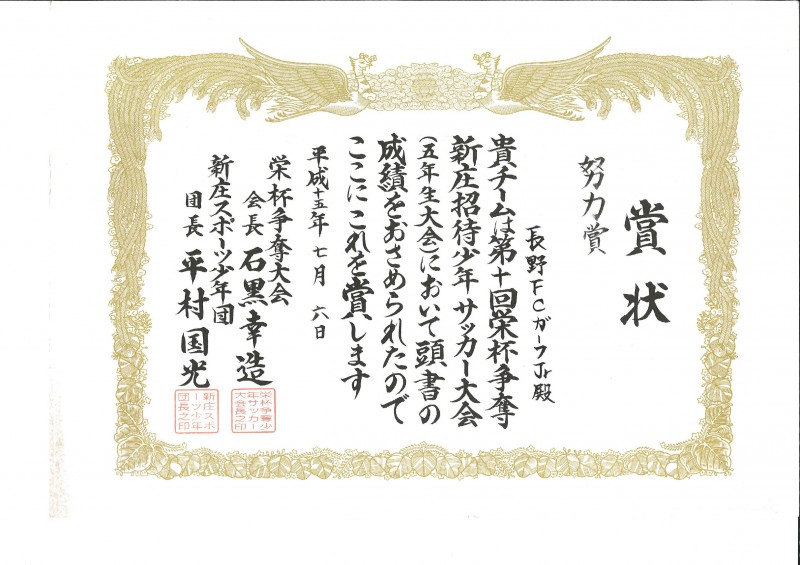 賞状
努力賞
長野FCガーフJr殿
貴チームは第十回栄杯争奪
新庄招待少年サッカー大会
(五年生大会)において頭書の
成績をおさめられたので
ここにこれを賞します
平成十五年七月六日
栄杯争奪大会
会長 石黒幸造
新庄スポーツ少年団
団長 平村国光
栄杯争奪少
年サッカー
大会長之印
新庄スポ
ーツ少年
団長之印